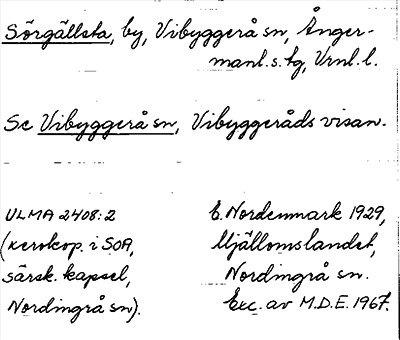 Sörgällsta, by, Vibyggerå sn, Ånger-
manl. s. tg, Vrnl. l.
Se Vibyggerå sn, Vibyggeråds visan.
ULMA 2408:2
(xerokop. i SOA,
särsk. kapsel,
Nordingrå sn).
E. Nordenmark 1929,
Mjällomslandet,
Nordingrå sn.
Exc. av M.D.E. 1967.